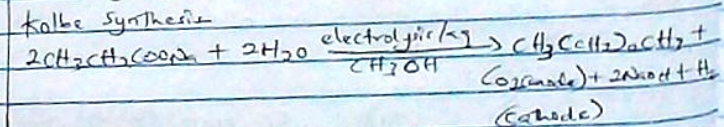 Kolbe Synthesis
2CH₃CH₂COONa + 2H₂O electrolysis/ → CH₃(CH₂)₂CH₃ +
CH₃OH
CO₂(anode) + 2NaOH + H₂
(Cathode)